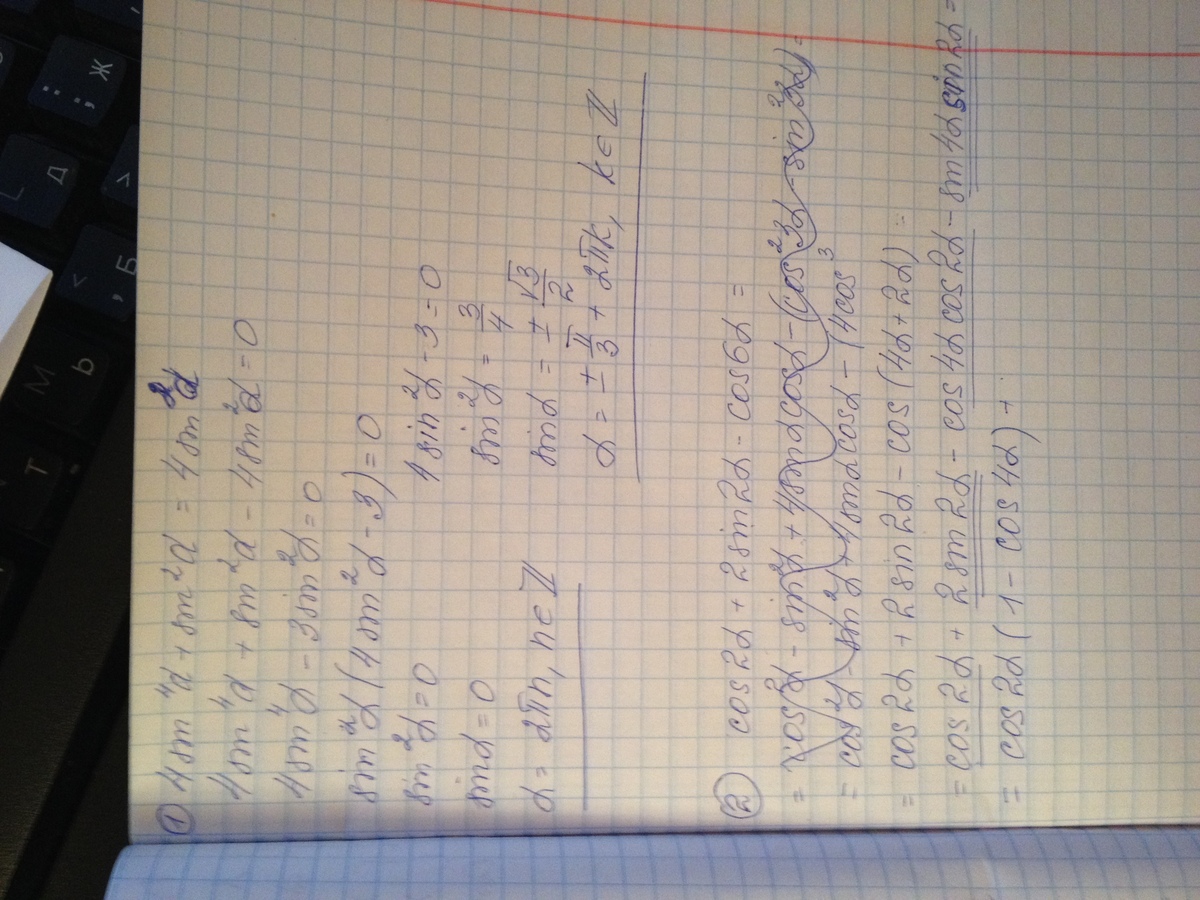 ① 4sin⁴α + sin²α = 4sin²α
4sin⁴α + sin²α - 4sin²α = 0
4sin⁴α - 3sin²α = 0
sin²α(4sin²α - 3) = 0
sin²α = 0
sinα = 0
α = 2πn, n∈ℤ
4sin²α - 3 = 0
sin²α = 3/4
sinα = ± √3/2
α = ± π/3 + 2πk, k∈ℤ
② cos2α + 2sin2α - cos6α =
= cos²α - sin²α + 4sinαcosα - (cos²3α - sin²3α) =
= cos²α - sin²α + 4sinαcosα - (4cos³
= cos2α + 2sin2α - cos(4α + 2α) =
= cos2α + 2sin2α - cos4αcos2α - sin4αsin2α =
= cos2α(1 - cos4α) +
Д
Ж
Б
Т
М
Ь